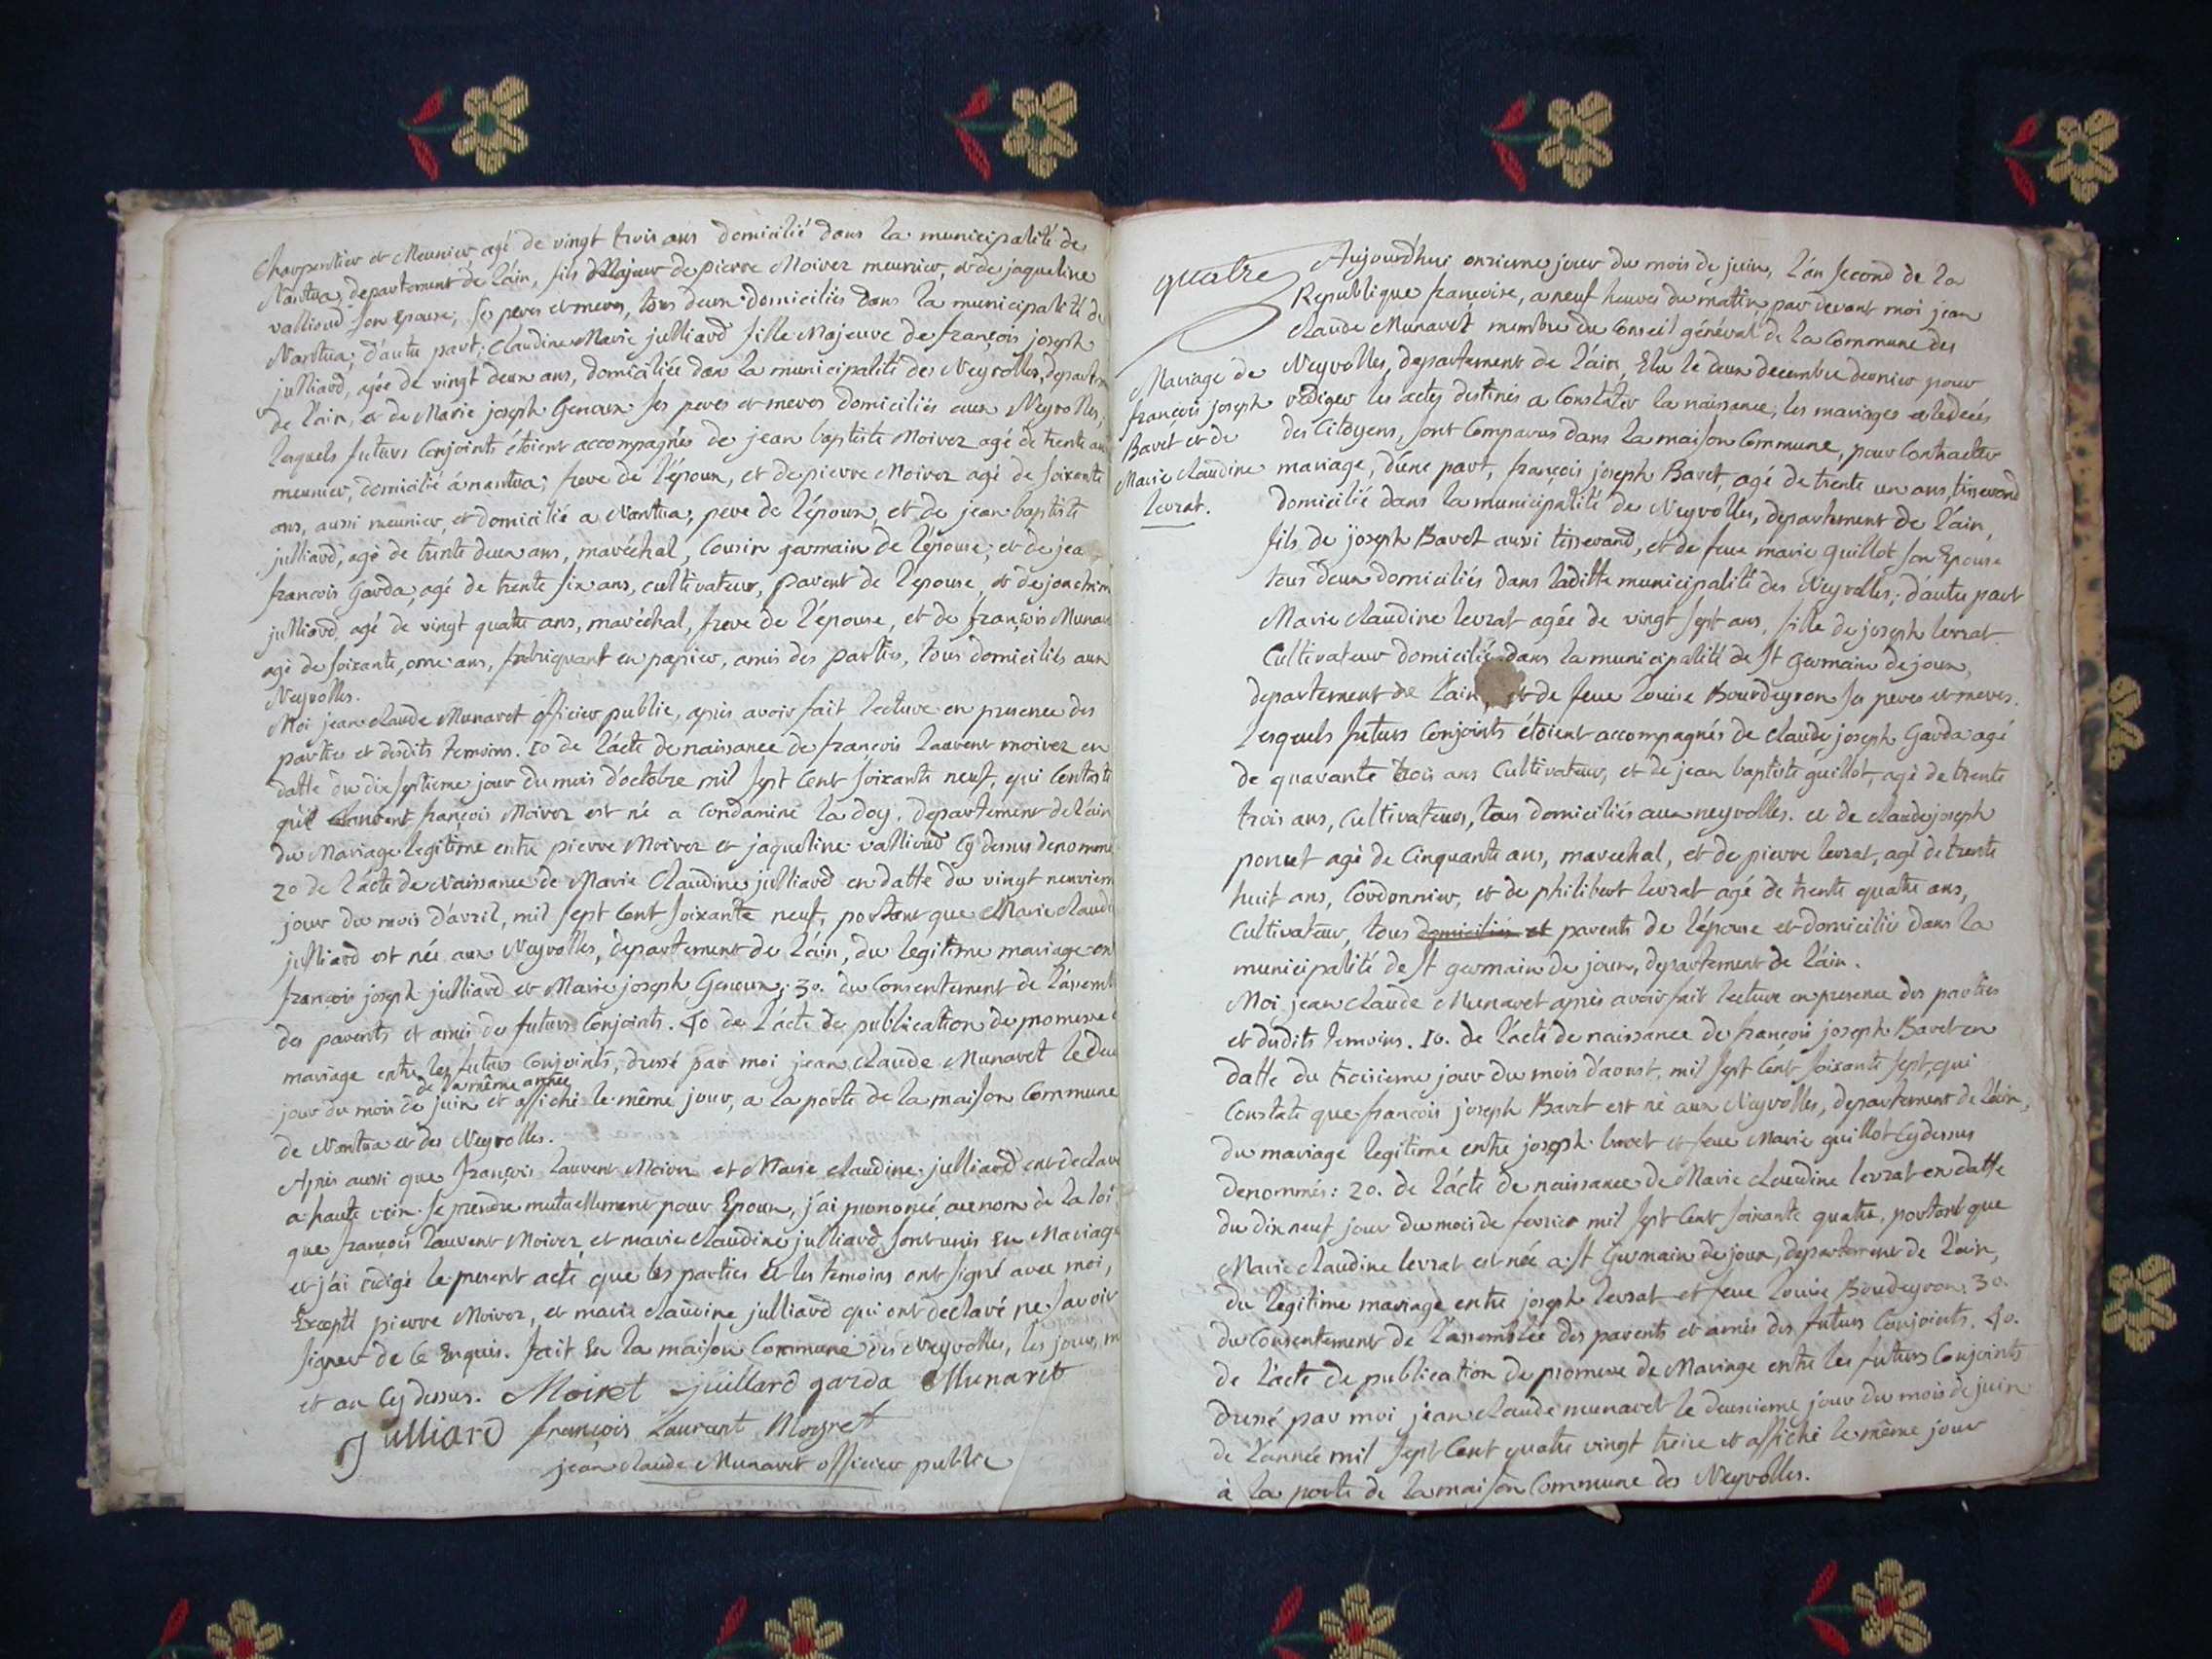 Charpentier et Meunier, agé de vingt trois ans domicilié dans la municipalité de
Nantua, departement de l'ain, fils Majeur de pierre Moirez meunier, et de jaqueline
valliond son epouse, ses peres et meres, tous deux domiciliés dans la municipalité de
Nantua; d'autre part, Claudine Marie julliard fille Majeure de françois joseph
julliard, agée de vingt deux ans, domiciliée dans la municipalité des Neyrolles, departem
de l'ain, et de Marie joseph Genoux ses peres et meres domiciliés aux Neyrolles,
lesquels futurs Conjoints étoient accompagnés de jean baptiste Moirez agé de trente ans
meunier, domicilié a nantua; frere de l'époux, et de pierre Moirez agé de soixante
ans, aussi meunier, et domicilié a Nantua, pere de l'époux, et de jean baptiste
julliard, agé de trente deux ans, maréchal, Cousin germain de l'épouse; et de jea
francois Garda, agé de trente six ans, cultivateur, parent de l'epouse, et de jonchim
julliard, agé de vingt quatre ans, maréchal, frere de l'épouse, et de françois Munar
agé de soixante, onze ans, fabriquant en papier, amis des parties, tous domiciliés aux
Neyrolles.
Moi jean claude Munaret officier public, après avoir fait lecture en presence des
parties et desdits temoins. 10 de l'acte de naissance de françois laurent moirez en
datte du dix septieme jour du mois d'octobre mil sept Cent soixante neuf, qui Constate
qu'il laurent françois Moirez est né a Condamine la doy, departement de l'ain
du Mariage legitime entre pierre Moirez et jaqueline valliond Cy dessus denommé
20 de l'acte de Naissance de Marie Claudine julliard en datte du vingt neuviem
jour du mois d'avril, mil sept Cent soixante neuf, portant que Marie claudi
julliard est née aux Neyrolles, departement de l'ain, du legitime mariage en
françois joseph julliard et Marie joseph Genoux; 30. du Consentement de l'assemb
des parents et amis des futurs Conjoints. 40 de l'acte de publication de promesse d
mariage entre les futurs Conjoints, dressé par moi jean claude Munaret le deu
de la même année
jour du mois de juin et affiché le même jour, a la porte de la maison Commune
de Nantua et des Neyrolles.
Après aussi que françois laurent Moirez et Marie claudine julliard ont declaré
a haute voix se prendre mutuellement pour Epoux, j'ai prononcé au nom de la loi
que françois laurent Moirez et marie claudine julliard sont unis en Mariage
et j'ai redigé le present acte que les parties et les temoins ont signé avec moi,
Excepté pierre Moirez, et marie claudine julliard qui ont declaré ne savoir
signer de ce Enquis. fait en la maison Commune des Neyrolles, les jours, m
et an Cy dessus. Moiret juillard garda Munaret
Julliard françois Laurant Moyret
jean claude Munaret officier public
quatre
Mariage de
françois joseph
Baret et de
Marie claudine
levrat.
Aujourd'hui onzieme jour du mois de juin, l'an second de la
Republique françoise, a neuf heures du matin, par devant moi jean
claude Munaret membre du Conseil général de la Commune des
Neyrolles, departement de l'ain, Elu le deux decembre dernier pour
rediger les actes destinés a Constater la naissance, les mariages et le decés
des Citoyens, sont Comparus dans la maison Commune, pour Contracter
mariage, d'une part, françois joseph Baret, agé de trente un ans, tisserand
domicilié dans la municipalité de Neyrolles, departement de l'ain,
fils de joseph Baret aussi tisserand, et de feue marie guillot son Epouse
tous deux domiciliés dans laditte municipalité des Neyrolles; d'autre part
Marie claudine levrat agée de vingt sept ans, fille de joseph levrat
Cultivateur domicilié dans la municipalité de St Germain de joux,
departement de l'ain, et de feue louise Bourdeyron ses peres et meres.
Lesquels futurs Conjoints étoient accompagnés de claude joseph Garda agé
de quarante trois ans Cultivateur, et de jean baptiste guillot, agé de trente
trois ans, Cultivateurs, tous domiciliés aux neyrolles. et de claude joseph
poncet agé de Cinquante ans, marechal, et de pierre levrat, agé de trente
huit ans, Cordonnier, et de philibert levrat agé de trente quatre ans,
Cultivateur, tous domiciliés et parents de l'épouse et domicilié dans la
municipalité de St germain de joux, departement de l'ain.
Moi jean claude Munaret après avoir fait lecture en presence des parties
et dudits temoins. 10. de l'acte de naissance de françois joseph Baret en
datte du troisieme jour du mois d'aoust, mil sept Cent soixante sept, qui
Constate que françois joseph Baret est né aux Neyrolles, departement de l'ain,
du mariage legitime entre joseph baret et feue Marie guillot Cy dessus
denommés: 20. de l'acte de naissance de Marie claudine levrat en datte
du dix neuf jour du mois de fevrier mil sept Cent soixante quatre, portant que
Marie claudine levrat est née a St Germain de joux, departement de l'ain,
du legitime mariage entre joseph levrat et feue louise Bourdeyron, 30.
du Consentement de l'assemblée des parents et amis des futurs Conjoints. 40.
de l'acte de publication de promesse de Mariage entre les futurs Conjoints
dressé par moi jean claude munaret le deuxieme jour du mois de juin
de l'année mil sept Cent quatre vingt treize et affiché le même jour
à la porte de la maison Commune des Neyrolles.